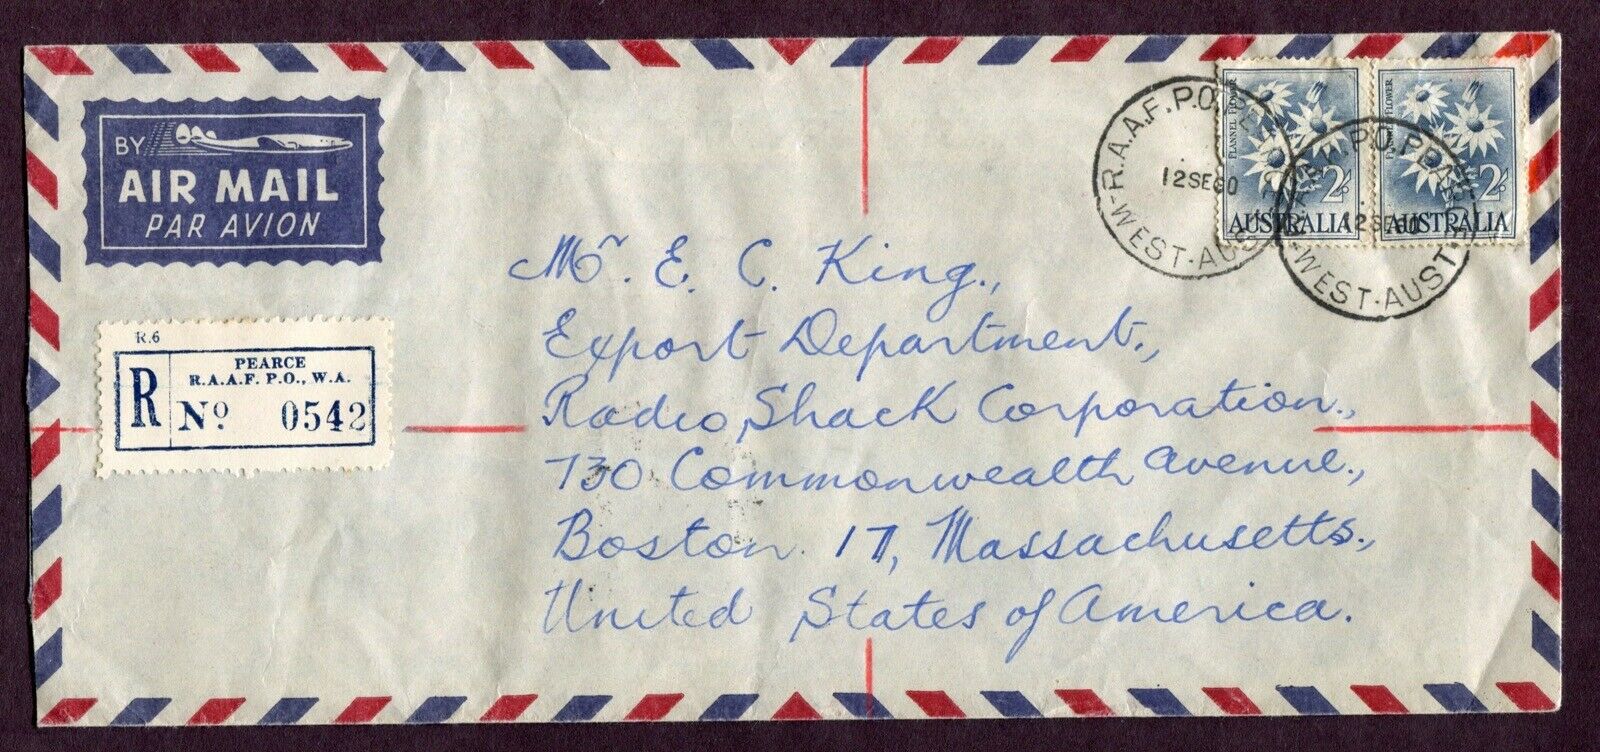 BY
AIR MAIL
PAR AVION
R.6
R
PEARCE
R.A.A.F. P.O., W.A.
No. 0542
R.A.A.F.P.O. PE
12SE60
WEST-AUS
FLANNEL FLOWER
2/-
AUSTRALIA
FLANNEL FLOWER
2/-
AUSTRALIA
P.O. PEA
12SE60
WEST-AUST
Mr. E. C. King.,
Export Department.,
Radio Shack Corporation.,
730 Commonwealth Avenue.,
Boston 17, Massachusetts.,
United States of America.